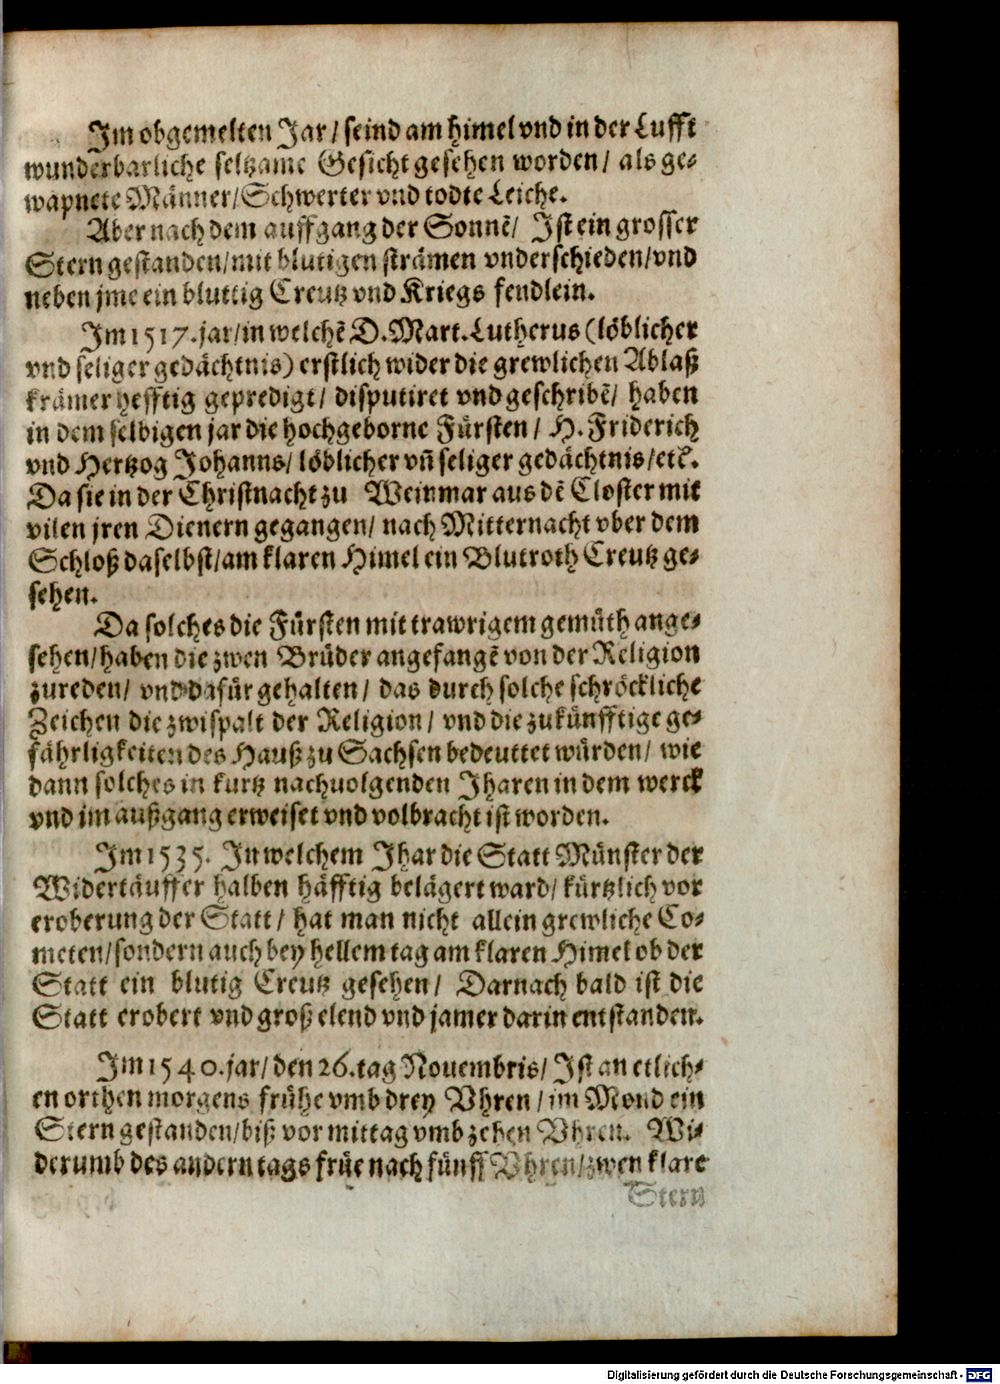 Im obgemelten Jar / seind am himel vnd in der Lufft
wunderbarliche seltzame Gesicht gesehen worden / als ge⸗
wapnete Männer / Schwerter vnd todte Leiche.
Aber nach dem auffgang der Sonnẽ / Ist ein grosser
Stern gestanden / mit blutigen strämen vnderschieden / vnd
neben jme ein bluttig Creutz vnd Kriegs fendlein.
Im 1517. jar / in welchẽ D. Mart. Lutherus (löblicher
vnd seliger gedächtnis) erstlich wider die grewlichen Ablaß
krämer hefftig gepredigt / disputiret vnd geschribẽ / haben
in dem selbigen jar die hochgeborne Fürsten / H. Friderich
vnd Hertzog Johanns / löblicher vñ seliger gedächtnis / etc̃.
Da sie in der Christnacht zu Weinmar aus dẽ Closter mit
vilen jren Dienern gegangen / nach Mitternacht vber dem
Schloß daselbst / am klaren Himel ein Blutroth Creutz ge⸗
sehen.
Da solches die Fürsten mit trawrigem gemüth ange⸗
sehen / haben die zwen Brüder angefangẽ von der Religion
zureden / vnd dafür gehalten / das durch solche schröckliche
Zeichen die zwispalt der Religion / vnd die zukünfftige ge⸗
fährligkeiten des Hauß zu Sachsen bedeuttet würden / wie
dann solches in kurtz nachuolgenden Jharen in dem werck
vnd im außgang erweiset vnd volbracht ist worden.
Im 1535. In welchem Jhar die Statt Münster der
Widertäuffer halben häfftig belägert ward / kürtzlich vor
eroberung der Statt / hat man nicht allein grewliche Co⸗
meten / sondern auch bey hellem tag am klaren Himel ob der
Statt ein blutig Creutz gesehen / Darnach bald ist die
Statt erobert vnd groß elend vnd jamer darin entstanden.
Im 1540. jar / den 26. tag Nouembris / Ist an etlich⸗
en orthen morgens frühe vmb drey Vhren / im Mond ein
Stern gestanden / biß vor mittag vmb zehen Vhren. Wi⸗
derumb des andern tags früe nach fünff Vhren / zwen klare
Stern
Digitalisierung gefördert durch die Deutsche Forschungsgemeinschaft - DFG